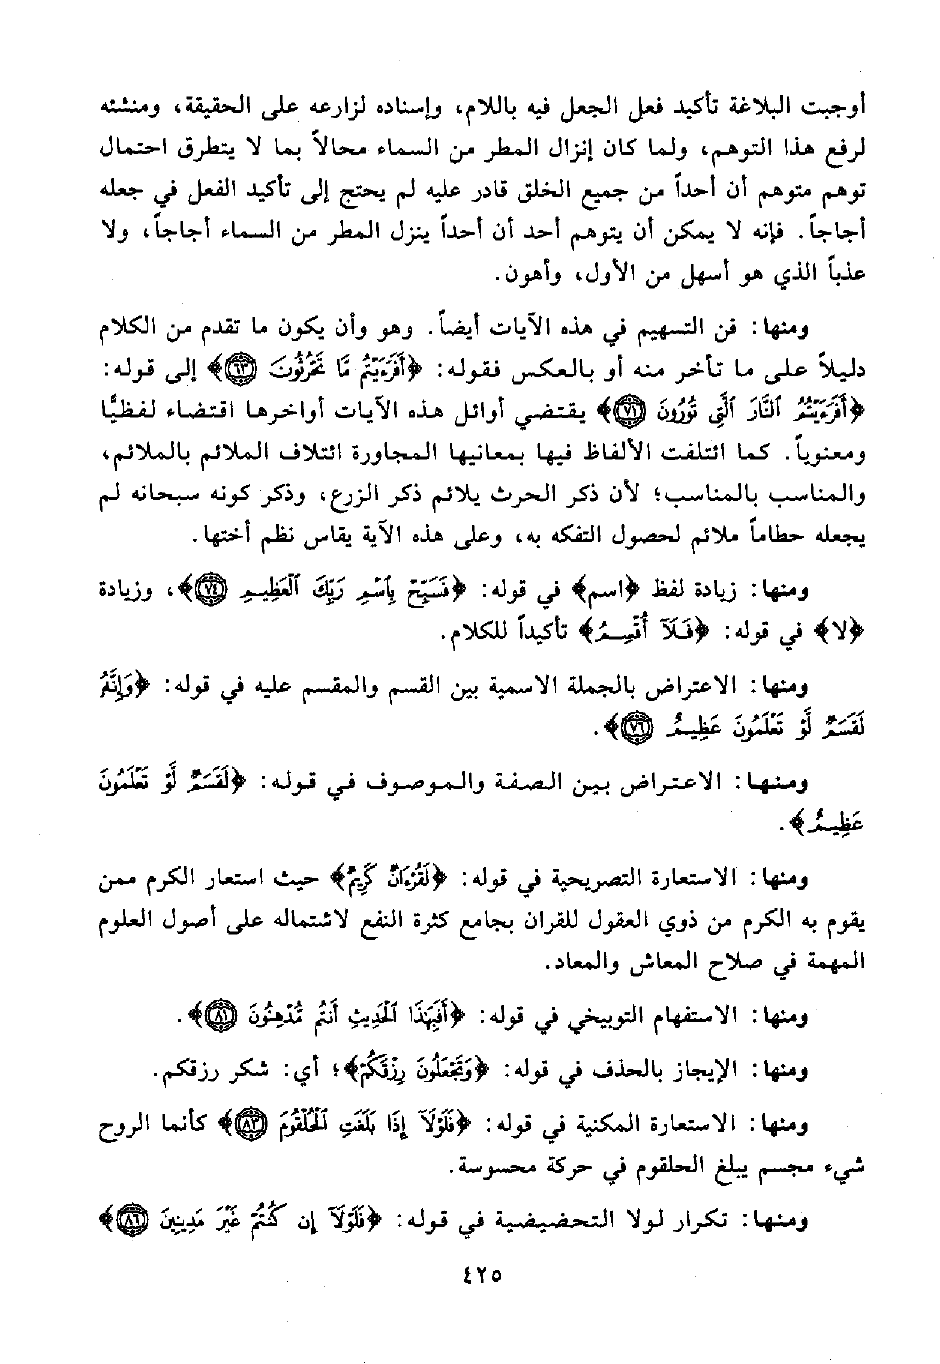 أوجبت البلاغة تأكيد فعل الجعل فيه باللام، وإسناده لزارعه على الحقيقة، ومنشئه
لرفع هذا التوهم، ولما كان إنزال المطر من السماء محالاً بما لا يتطرق احتمال
توهم متوهم أن أحداً من جميع الخلق قادر عليه لم يحتج إلى تأكيد الفعل في جعله
أجاجاً. فإنه لا يمكن أن يتوهم أحد أن أحداً ينزل المطر من السماء أجاجاً، ولا
عذباً الذي هو أسهل من الأول، وأهون.
ومنها: فن التسهيم في هذه الآيات أيضاً. وهو وأن يكون ما تقدم من الكلام
دليلاً على ما تأخر منه أو بالعكس فقوله: ﴿أَفَرَءَيْتُم مَّا تَحْرُثُونَ ﴿٦٣﴾﴾ إلى قوله:
﴿أَفَرَءَيْتُمُ ٱلنَّارَ ٱلَّتِى تُورُونَ ﴿٧١﴾﴾ يقتضي أوائل هذه الآيات أواخرها اقتضاء لفظيًّا
ومعنوياً. كما ائتلفت الألفاظ فيها بمعانيها المجاورة ائتلاف الملائم بالملائم،
والمناسب بالمناسب؛ لأن ذكر الحرث يلائم ذكر الزرع، وذكر كونه سبحانه لم
يجعله حطاماً ملائم لحصول التفكه به، وعلى هذه الآية يقاس نظم أختها.
ومنها: زيادة لفظ ﴿اسم﴾ في قوله: ﴿فَسَبِّحْ بِٱسْمِ رَبِّكَ ٱلْعَظِيمِ ﴿٧٤﴾﴾، وزيادة
﴿لا﴾ في قوله: ﴿فَلَآ أُقْسِمُ﴾ تأكيداً للكلام.
ومنها: الاعتراض بالجملة الاسمية بين القسم والمقسم عليه في قوله: ﴿وَإِنَّهُۥ
لَقَسَمٌ لَّوْ تَعْلَمُونَ عَظِيمٌ ﴿٧٦﴾﴾.
ومنها: الاعتراض بين الصفة والموصوف في قوله: ﴿لَقَسَمٌ لَّوْ تَعْلَمُونَ
عَظِيمٌ﴾.
ومنها: الاستعارة التصريحية في قوله: ﴿لَقُرْءَانٌ كَرِيمٌ﴾ حيث استعار الكرم ممن
يقوم به الكرم من ذوي العقول للقران بجامع كثرة النفع لاشتماله على أصول العلوم
المهمة في صلاح المعاش والمعاد.
ومنها: الاستفهام التوبيخي في قوله: ﴿أَفَبِهَٰذَا ٱلْحَدِيثِ أَنتُم مُّدْهِنُونَ ﴿٨١﴾﴾.
ومنها: الإيجاز بالحذف في قوله: ﴿وَتَجْعَلُونَ رِزْقَكُمْ﴾؛ أي: شكر رزقكم.
ومنها: الاستعارة المكنية في قوله: ﴿فَلَوْلَآ إِذَا بَلَغَتِ ٱلْحُلْقُومَ ﴿٨٣﴾﴾ كأنما الروح
شيء مجسم يبلغ الحلقوم في حركة محسوسة.
ومنها: تكرار لولا التحضيضية في قوله: ﴿فَلَوْلَآ إِن كُنتُمْ غَيْرَ مَدِينِينَ ﴿٨٦﴾﴾
٤٢٥